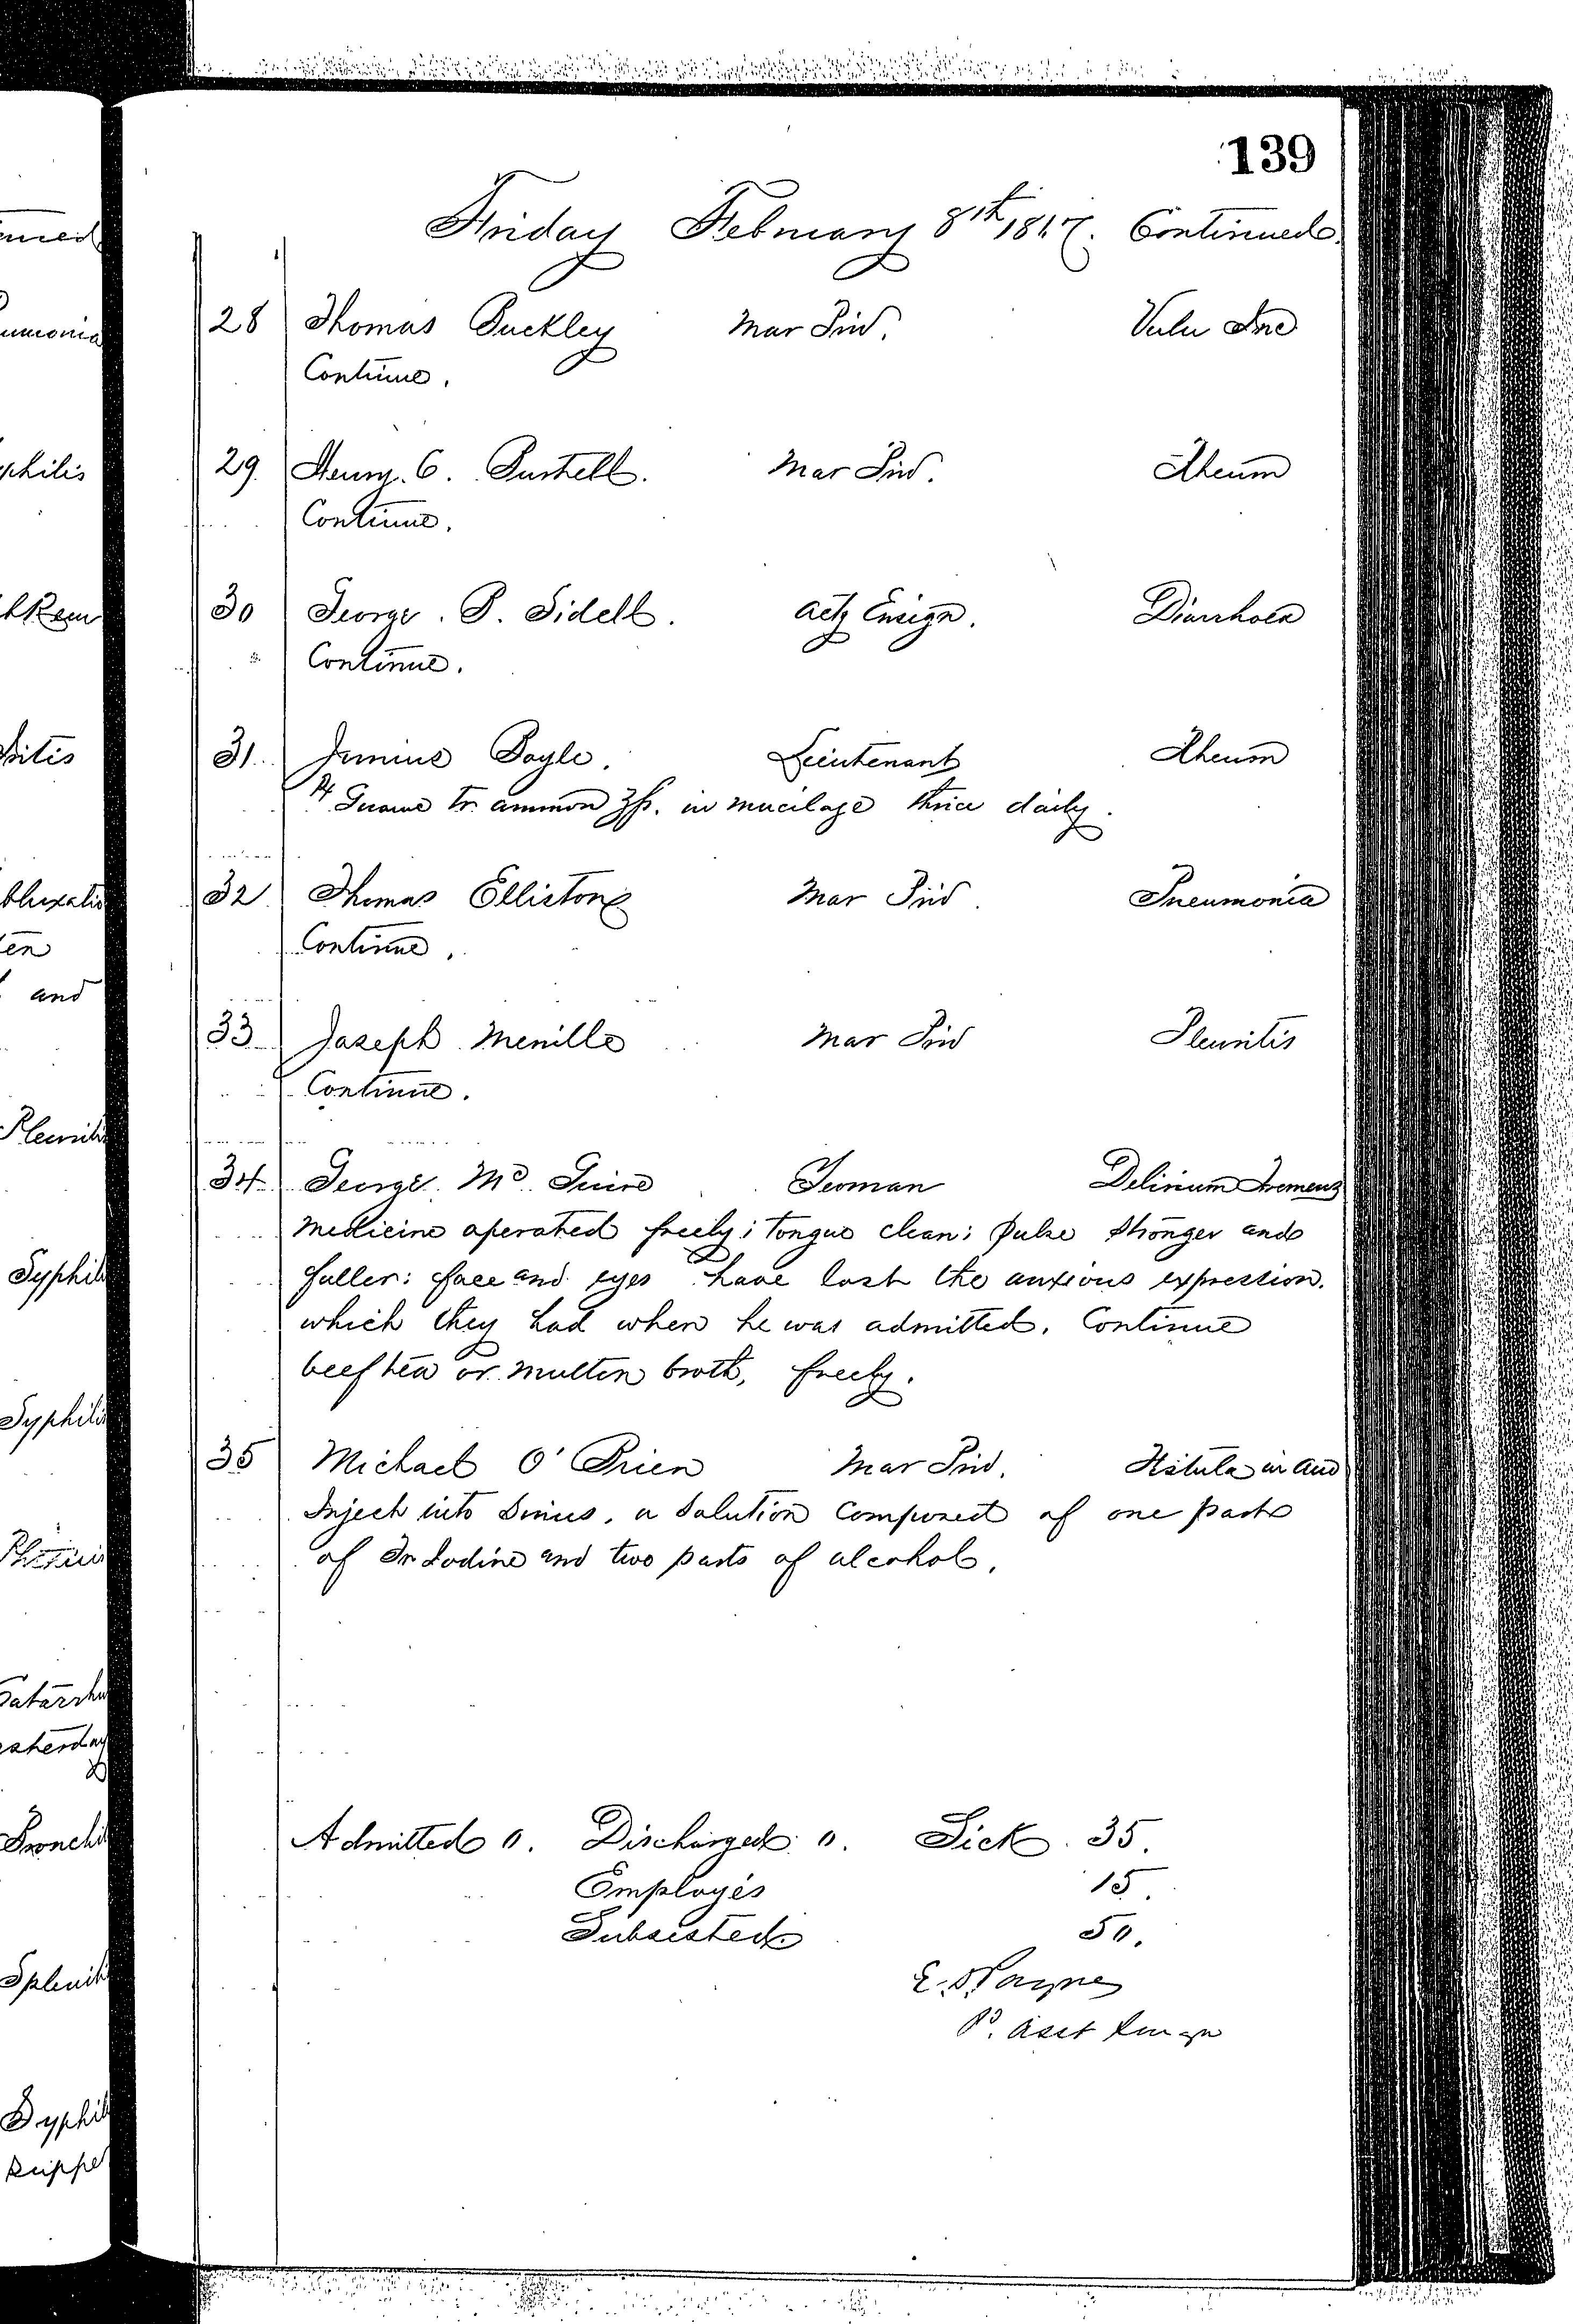 139
Friday February 8th 1867. Continued.
28 Thomas Buckley Mar Pind. Vuln Inc
Continue.
29 Henry C. Bushell. Mar Pind. Rheum
Continue.
30 George. P. Sidell. Actg Ensign. Diarrhoea
Continue.
31 Junius Boyle. Lieutenant Rheum
℞ Guaiac Tr. ammon ʒſs. in mucilage thrice daily.
32 Thomas Ellistone Mar Pind. Pneumonia
Continue.
33 Joseph Menille Mar Pind Pleuritis
Continue.
34 George. Mc Guire Yeoman Delirium Tremens
Medicine operated freely; tongue clean; pulse stronger and
fuller: face and eyes have lost the anxious expression.
which they had when he was admitted. Continue
beef tea or mutton broth, freely.
35 Michael O'Brien Mar Pind. Fistula in Ano
Inject into sinus, a solution composed of one part
of Tr. Iodine and two parts of alcohol.
Admitted 0. Discharged 0. Sick. 35.
Employés 15.
Subsisted. 50.
P. Asst Surgn
umonia
yphilis
and
Pleuriti
Syphili
Syphili
Catarrhu
esterday
Bronchi
Spleniti
Syphil